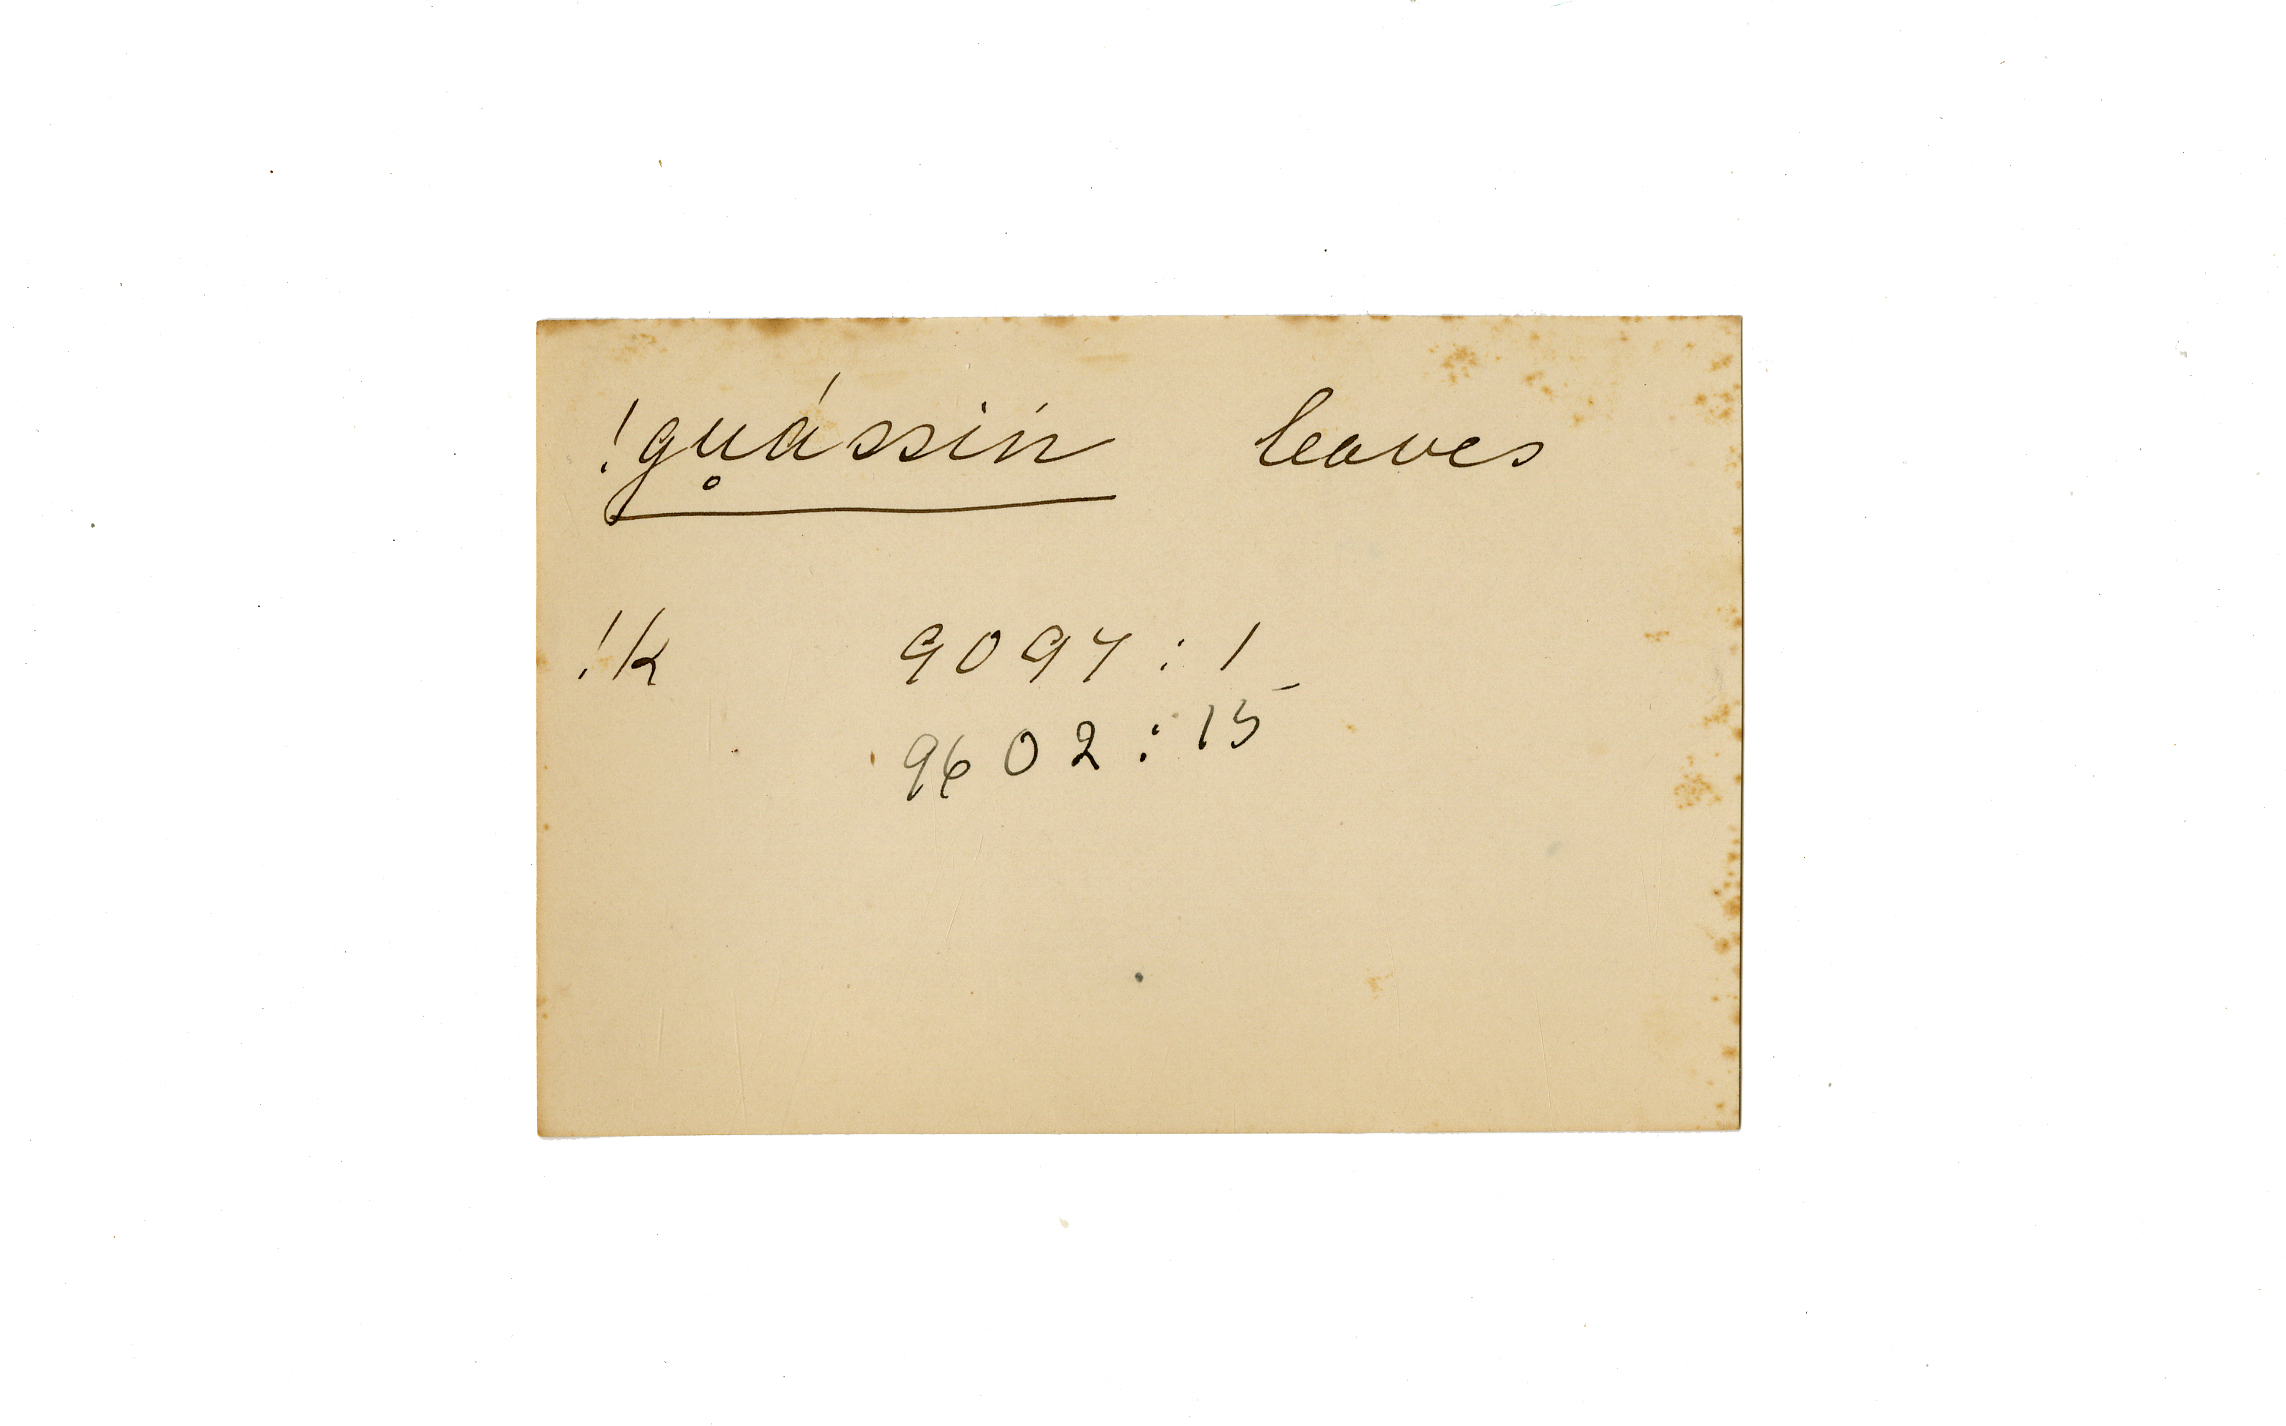 !gu̥ássin leaves
!k 9094 : 1
9602 : 15